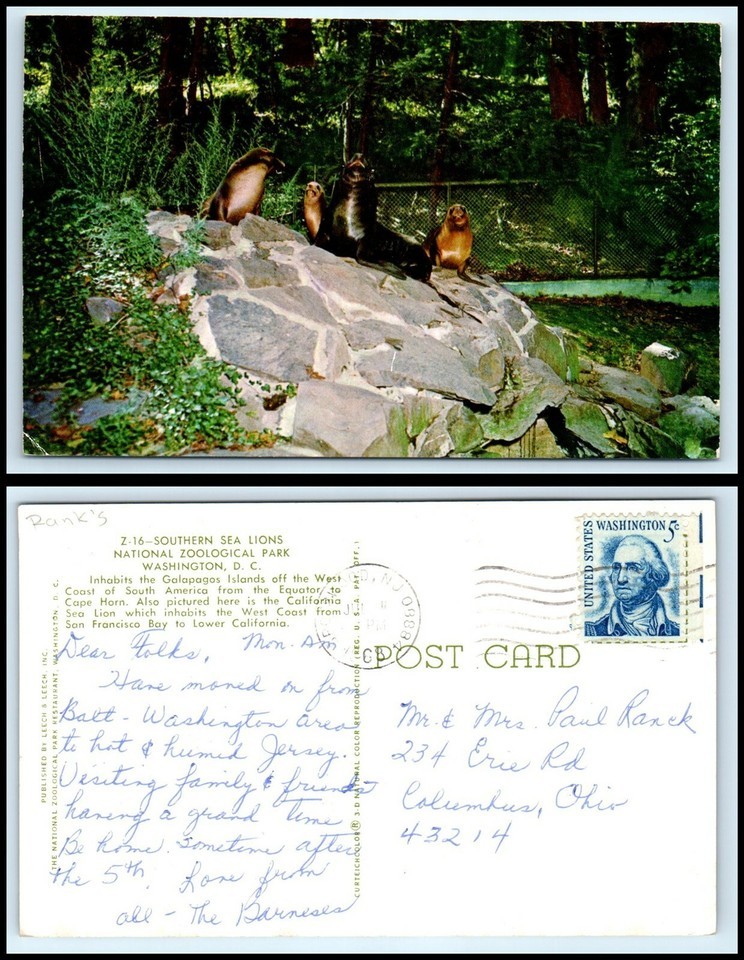 Rank's
Z-16—SOUTHERN SEA LIONS
NATIONAL ZOOLOGICAL PARK
WASHINGTON, D. C.
Inhabits the Galapagos Islands off the West
Coast of South America from the Equator to
Cape Horn. Also pictured here is the California
Sea Lion which inhabits the West Coast from
San Francisco Bay to Lower California.
Dear Folks, Mon. Am
Have moved on from
Balt - Washington area
to hot & humid Jersey.
Visiting family & friends
having a grand time
Be home sometime after
the 5th. Love from
all - The Barneses
PUBLISHED BY LEECH & LEECH, INC.
THE NATIONAL ZOOLOGICAL PARK RESTAURANT, WASHINGTON, D. C.
CURTEICHCOLOR® 3-D NATURAL COLOR REPRODUCTION (REG. U. S. A. PAT. OFF.)
NJ 088
PM
POST CARD
UNITED STATES
WASHINGTON 5c
Mr. & Mrs. Paul Ranck
234 Erie Rd
Columbus, Ohio
43214